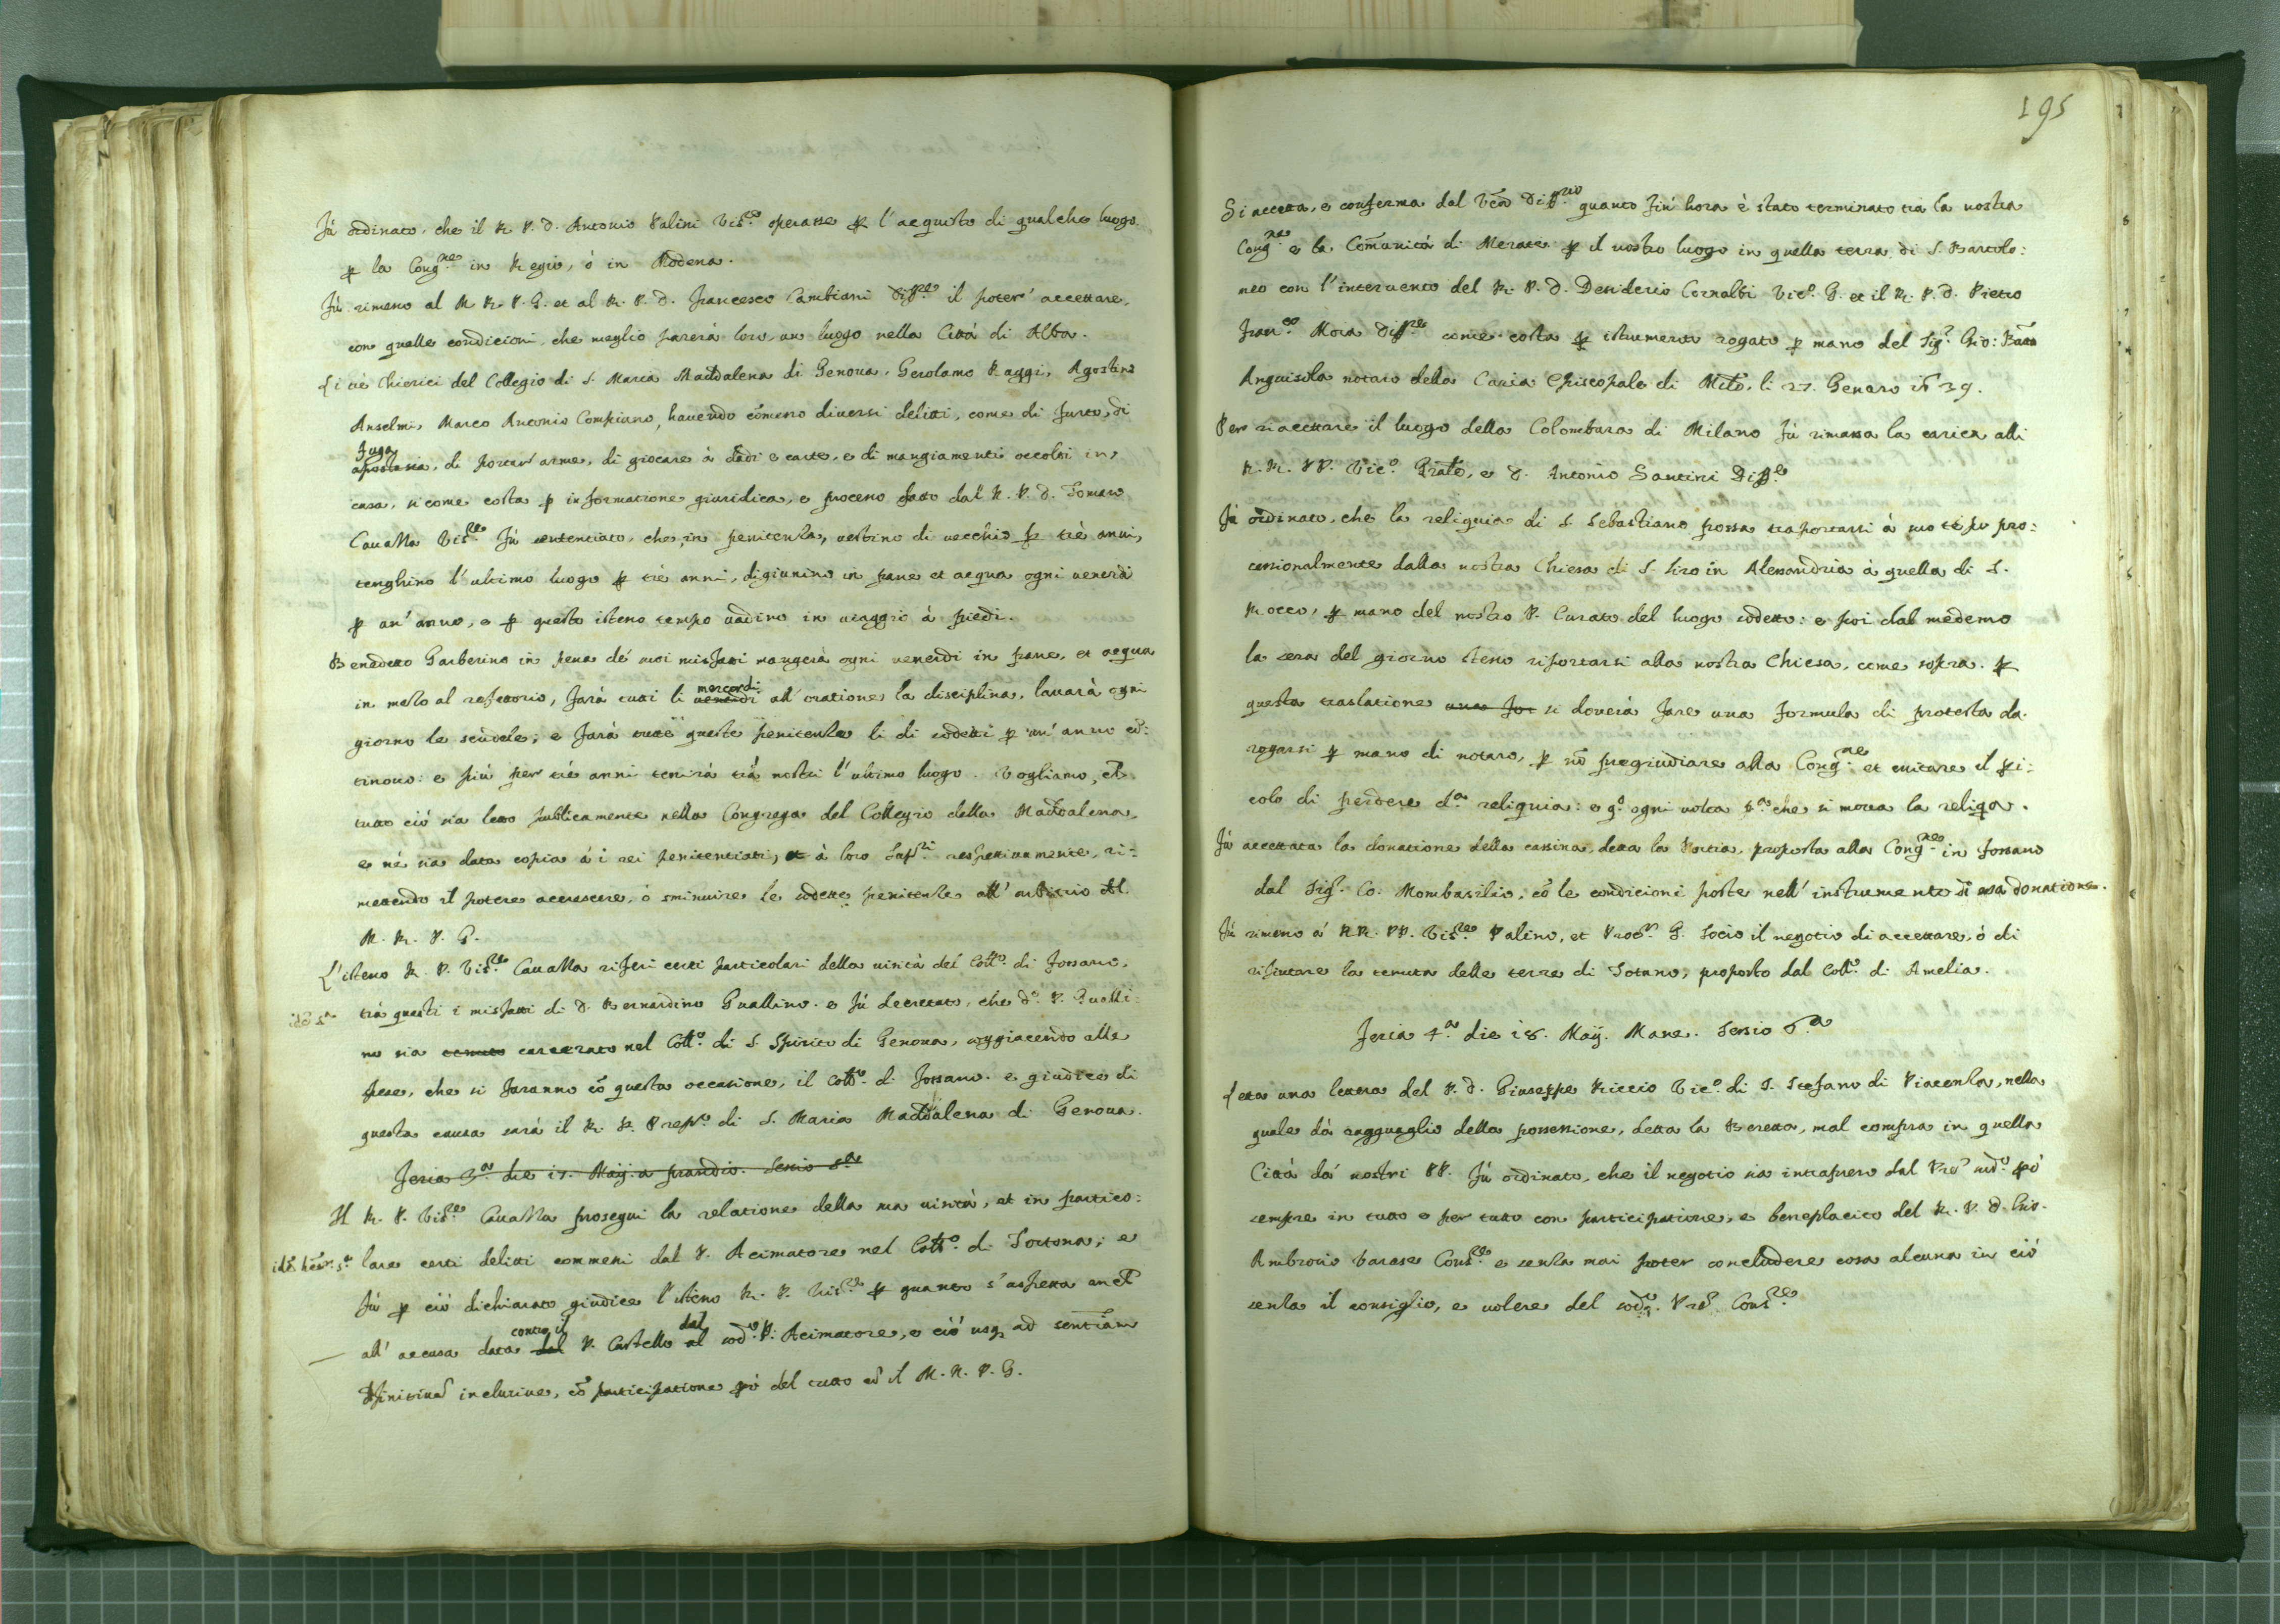 Fù ordinato, che il R. P. D. Antonio Palini Vis.re operasse per l'acquisto di qualche luogo
per la Cong.ne in Regio, ò in Modena.
Fù rimesso al M. R. P. G. et al R. P. D. Francesco Cambiani Diff.re il poter' accettare,
con quelle condicioni, che meglio parerà loro, un luogo nella Città di Alba.
Li trè Chierici del Collegio di S. Maria Maddalena di Genova, Gerolamo Raggi, Agostino
Anselmi, Marco Antonio Compiano, havendo cõmesso diversi delitti, come di furto, di
fuga
apostasia, di portar arme, di giocare à dadi e carte, e di mangiamenti occolti in
casa, si come costa per informatione giuridica, e processo fatto dal R. P. D. Tomaso
Cavalla Vis.re Fù sententiato, che, in penitenza, vestino di vecchio per trè anni,
tenghino l'ultimo luogo per trè anni, digiunino in pane et acqua ogni venerdi
per un' anno, e per questo istesso tempo vadino in viaggio à piedi.
Benedetto Garberino in pena de' suoi misfatti mangerà ogni venerdi in pane, et acqua
in mezo al refettorio, farà tutti li venerdi mercordi all' oratione la disciplina, lavarà ogni
giorno le scudele; e farà tutte queste penitenze li di sodetti per un' anno cõ:
tinovo: e più per trè anni tenirà trà nostri l'ultimo luogo. Vogliamo, ch
tutto ciò sia letto publicamente nella Congrega del Collegio della Maddalena,
e ne sia data copia à i rei penitentiati, et à loro Sup.ri respettivamente, ri:
mettendo il potere accrescere, ò sminuire le sodette penitenze all' arbitrio del
M. R. P. G.
L'istesso R. P. Vis.re Cavalla riferi certi particolari della visita del Coll.o di Fossano,
trà questi i misfatti di D. Bernardino Guallino. e fù decretato, che d.o P. Gualli:
no sia tenuto carcerato nel Coll.o di S. Spirito di Genova, soggiacendo alle
spese, che si faranno cõ questa occasione, il Coll.o di Fossano. e giudice di
questa causa sarà il R. P. Prep.o di S. Maria Maddalena di Genova.
Feria 3.a die 17. Maij. a prandio. Sessio 5.a
Il R. P. Vis.re Cavalla prosegui la relatione della sua visita, et in partico:
lare certi delitti commessi dal P. Acimatore nel Coll.o di Tortona; e
fù per ciò dichiarato giudice l'istesso R. P. Vis.re per quanto s'aspetta anch
contro il dal
all' accusa data dal P. Castello al sod.o P. Acimatore, e ciò usq ad sentiam
inclusive, cõ participatione però del tutto cõ il M. R. P. G.
195
Si accetta, e conferma dal Ven Diff.rio quanto fin' hora è stato terminato trà la nostra
Cong.ne e la Comunità di Merate per il nostro luogo in quella terra di S. Bartolo:
meo con l'intervento del R. P. D. Desiderio Cornalbi Vic.o G. et il R. P. D. Pietro
Fran.co Moia Diff.re come costa per istrumento rogato per mano del Sig.r Gio: Batta
Anguisola notaro della Curia Episcopale di Mil.o, li 27. Genaro 1639.
Per riaccettare il luogo della Colombara di Milano fù rimessa la carica alli
R. R. PP. Vic.o Grãle, e D. Antonio Santini Diff.re
Fù ordinato, che la reliquia di S. Sebastiano possa traportarsi à suo tẽpo pro:
cessionalmente dalla nostra Chiesa di S. Siro in Alessandria à quella di S.
Rocco, per mano del nostro P. Curato del luogo sodetto: e poi dal medemo
la sera del giorno istesso riportarsi alla nostra Chiesa, come sopra. per
questa traslatione una for si doverà fare una formula di protesta da
rogarsi per mano di notaro, per nõ pregiudiare alla Cong.ne et evitare il peri:
colo di perdere d.a reliquia: e q.o ogni volta che si mova la reliqa.
Fù accettata la donatione della cassina detta la proposta alla Cong.ne in Fossano
dal Sig.r Co. Mombasilio, cõ le condicioni poste nell' instrumento di essa donatione.
Fù rimesso à RR. PP. Vis.re Palino, et Proc.r G. Socio il negotio di accettare, ò di
rifiutare la tenuta delle terre di proposto dal Coll.o di Amelia.
Feria 4.a die 18. Maij. Mane. Sessio 6.a
Letta una lettera del P. D. Giuseppe Riccio Vic.o di S. Stefano di Piacenza, nella
quale dà ragguaglio della possessione, detta la Beretta, mal compra in quella
Città da' nostri PP. Fù ordinato, che il negotio sia intrapreso dal P.re sud.o però
sempre in tutto e per tutto con participatione, e beneplacito del R. P. D. Gio.
Ambrosio Varese Cons.re e senza mai poter concludere cosa alcuna in ciò
senza il consiglio, e volere del sod.o P.re Cons.re